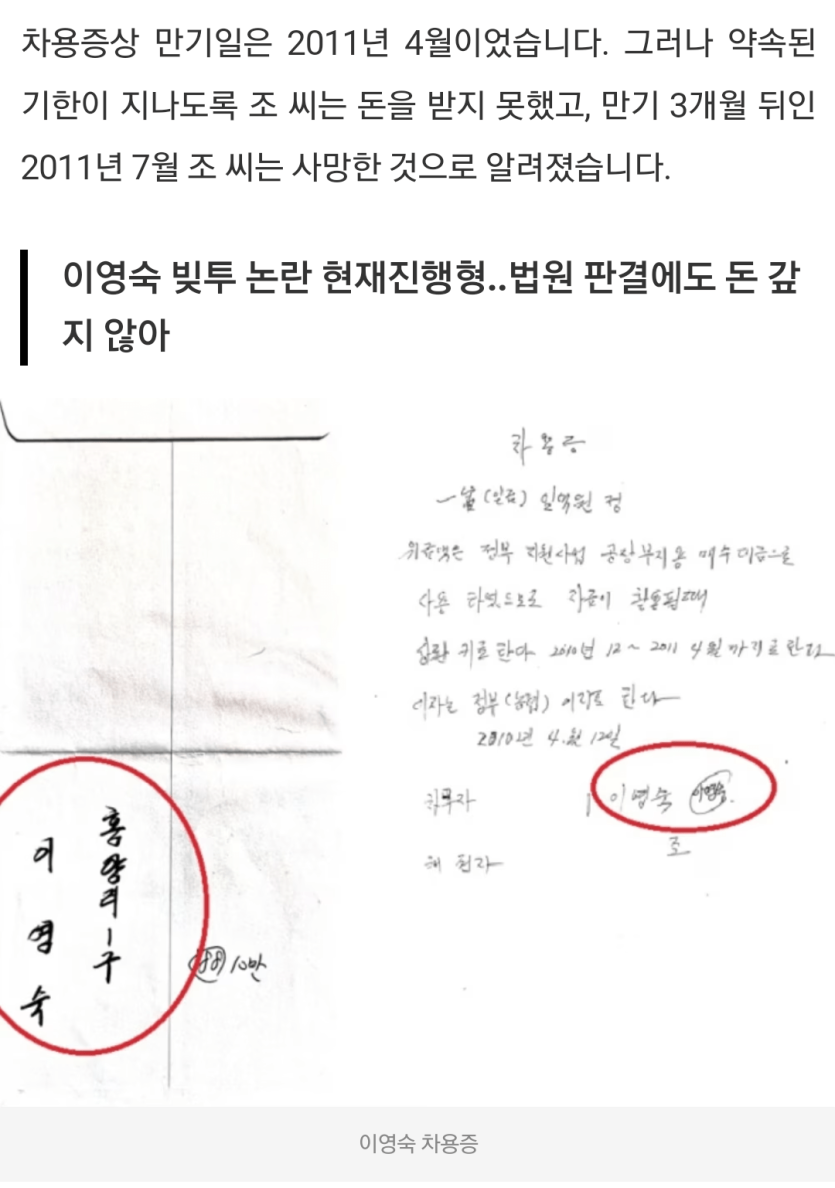 차용증상 만기일은 2011년 4월이었습니다. 그러나 약속된
기한이 지나도록 조 씨는 돈을 받지 못했고, 만기 3개월 뒤인
2011년 7월 조 씨는 사망한 것으로 알려졌습니다.
이영숙 빚투 논란 현재진행형..법원 판결에도 돈 갚
지 않아
차용증
一金 (일금) 일억원 정
위금액은 정부 지원사업 공장부지용 매수대금으로
사용 하였으므로 자금이 활용될때
2010년 12 ~ 2011 4월까지로 한다
이자는 정부(농협) 이자로 한다
2010년 4.월 12일
채무자 이영숙
조
채권자
홍양리 1구
이영숙
10만
이영숙 차용증